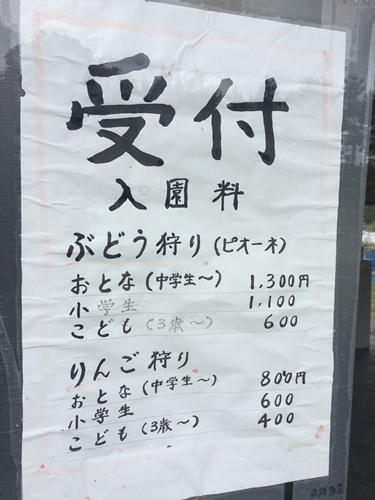 受付
入園料
ぶどう狩り(ピオーネ)
おとな(中学生～) 1,300円
小学生 1,100
こども(3歳～) 600
りんご狩り
おとな(中学生～) 800円
小学生 600
こども(3歳～) 400